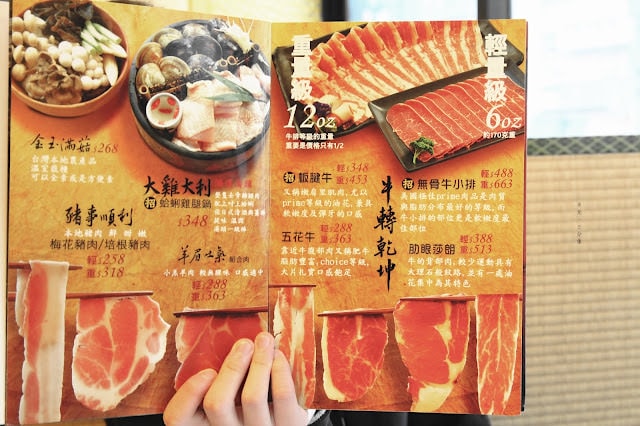 金玉滿菇 $268
台灣本地農產品
溫室栽種
可以全素或是方便素
豬事順利
本地豬肉 鮮 甜 嫩
梅花豬肉/培根豬肉
輕$258
重$318
大雞大利
招 蛤蜊雞腿鍋
$348
羊眉吐氣 組合肉
小羔羊肉 輕無腥味 口感適中
輕$288
重$363
重量級
12oz
牛排等級的重量
重要是價格只有1/2
輕量級
6oz
約170克重
牛轉乾坤
招 板腱牛
輕$348
重$453
又稱嫩肩里肌肉,尤以
prime等級的油花,兼具
軟嫩度及彈牙的口感
五花牛
輕$288
重$363
靠近牛腹部肉又稱肥牛
脂肪豐富,choice等級,
大片扎實口感飽足
招 無骨牛小排
輕$488
重$663
美國極佳prime肉品是肉質
與脂肪分布最好的等級,而
牛小排的部位更是軟嫩度最
佳部位
肋眼莎朗
輕$388
重$513
牛的背部肉,較少運動具有
大理石般紋路,並有一處油
花集中為其特色